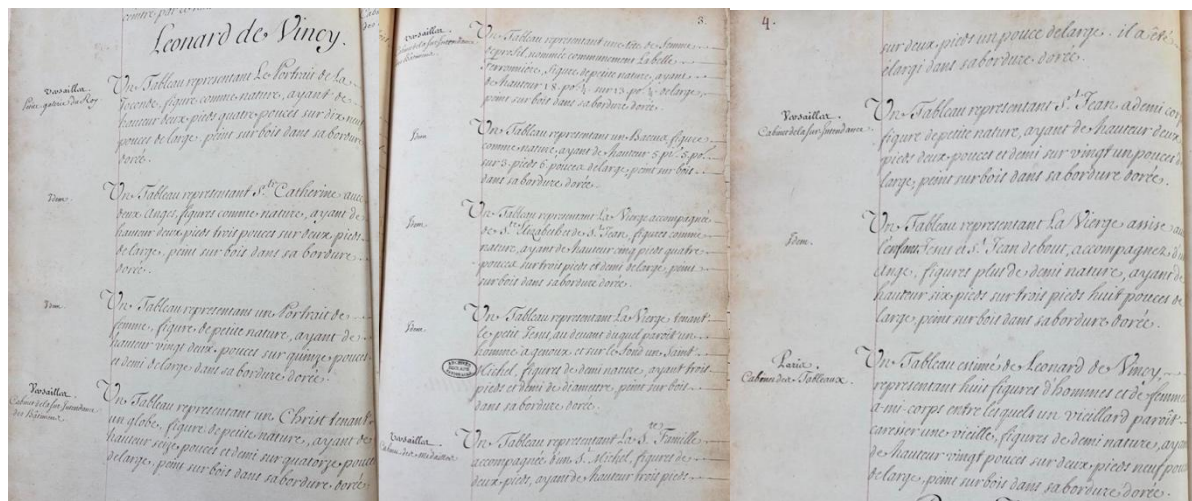 Leonard de Vincy.
Versailles
Petite galerie du Roy
Un Tableau representant Le Portrait de La
Joconde, figure comme nature, ayant de
hauteur deux pieds quatre pouces sur dix neuf
pouces de large, peint sur bois dans sa bordure
dorée.
Idem
Un Tableau representant Ste Catherine avec
deux Anges, figures comme nature, ayant de
hauteur deux pieds trois pouces sur deux pieds
de large, peint sur bois dans sa bordure
dorée.
Idem
Un Tableau representant un Portrait de
femme, figure de petite nature, ayant de
hauteur vingt deux pouces sur quinze pouces
et demi de large dans sa bordure dorée.
Versailles
Cabinet de la Sur-Intendance
des Bâtimens
Un Tableau representant un Christ tenant
un globe, figure de petite nature, ayant de
hauteur seize pouces et demi sur quatorze pouces
de large, peint sur bois dans sa bordure dorée
3.
Versailles
Cabinet de la Sur-Intendance
des Bâtimens
Un Tableau representant une tête de femme
de profil, nommée communément La belle
Ferronniere, figure de petite nature, ayant
de hauteur 18. po. sur 13. po. de large,
peint sur bois dans sa bordure dorée.
Idem
Un Tableau representant un Baccus, figure
comme nature, ayant de hauteur 5 pi. 5. po.
sur 3. pieds 6 pouces de large, peint sur bois
dans sa bordure dorée.
Idem
Un Tableau representant La Vierge accompagnée
de Ste Elizabeth et de St Jean, figures comme
nature, ayant de hauteur cinq pieds quatre
pouces sur trois pieds et demi de large, peint
sur bois dans sa bordure dorée.
Idem
Un Tableau representant La Vierge tenant
le petit Jesus, au devant duquel paroît un
homme a genoux et sur le fond un Saint
Michel, figures de demi nature, ayant trois
pieds et demi de diametre, peint sur bois
dans sa bordure dorée.
ARCHIVES
Versailles
Cabinet des medailles
Un Tableau representant La Ste Famille
accompagnée d'un St Michel, figures de
deux pieds, ayant de hauteur trois pieds
4.
sur deux pieds un pouce de large. il a été
élargi dans sa bordure dorée.
Versailles
Cabinet de la Sur-Intendance
Un Tableau representant St Jean a demi corps
figure de petite nature, ayant de hauteur deux
pieds deux pouces et demi sur vingt un pouces de
large, peint sur bois dans sa bordure dorée.
Idem
Un Tableau representant La Vierge assise
l'enfant Jesus et St Jean debout, accompagnez d'un
Ange, figures plus de demi nature, ayant de
hauteur six pieds sur trois pieds huit pouces de
large, peint sur bois dans sa bordure dorée.
Paris
Cabinet des Tableaux
Un Tableau estimé de Leonard de Vincy,
representant huit figures d'hommes et de femmes
a mi-corps entre lesquels un vieillard paroît
caresser une vieille, figures de demi nature, ayant
de hauteur vingt pouces sur deux pieds neuf pouces
de large, peint sur bois dans sa bordure dorée.